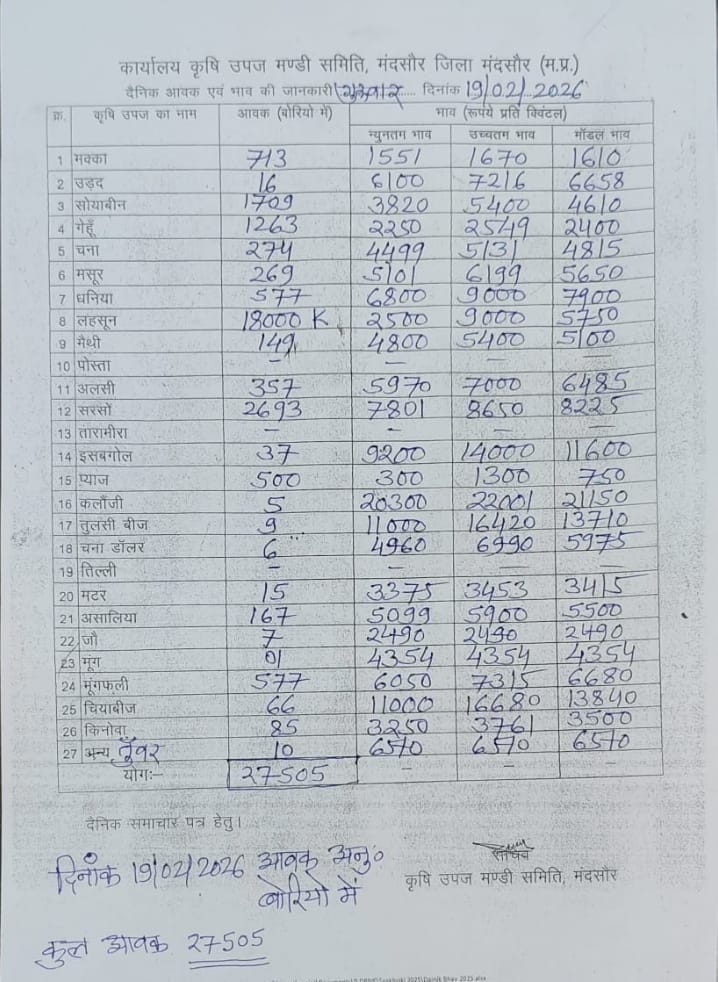 कार्यालय कृषि उपज मण्डी समिति, मंदसौर जिला मंदसौर (म.प्र.)
दैनिक आवक एवं भाव की जानकारी गुरूवार..... दिनांक 19/02/2026
क्र. कृषि उपज का नाम आवक (बोरियो में) भाव (रूपये प्रति क्विंटल)
न्युनतम भाव उच्चतम भाव मॉडल भाव
1 मक्का 713 1551 1670 1610
2 उड़द 16 6100 7216 6658
3 सोयाबीन 1709 3820 5400 4610
4 गेहूँ 1263 2250 2549 2400
5 चना 274 4499 5131 4815
6 मसूर 269 5101 6199 5650
7 धनिया 577 6800 9000 7900
8 लहसून 18000 K 2500 9000 5750
9 मैथी 149 4800 5400 5100
10 पोस्ता — — — —
11 अलसी 357 5970 7000 6485
12 सरसों 2693 7801 8650 8225
13 तारामीरा — — — —
14 इसबगोल 37 9200 14000 11600
15 प्याज 500 300 1300 750
16 कलौंजी 5 20300 22001 21150
17 तुलसी बीज 9 11000 16420 13710
18 चना डॉलर 6 4960 6990 5975
19 तिल्ली — — — —
20 मटर 15 3375 3453 3415
21 असालिया 167 5099 5900 5500
22 जौ 7 2490 2490 2490
23 मूंग 01 4354 4354 4354
24 मूंगफली 577 6050 7315 6680
25 चियाबीज 66 11000 16680 13840
26 किनोवा 85 3250 3761 3500
27 अन्य तुँवर 10 6570 6570 6570
योगः- 27505 — — —
दैनिक समाचार पत्र हेतु।
सचिव
कृषि उपज मण्डी समिति, मंदसौर
दिनांक 19/02/2026 आवक अनु०
बोरियो में
कुल आवक 27505